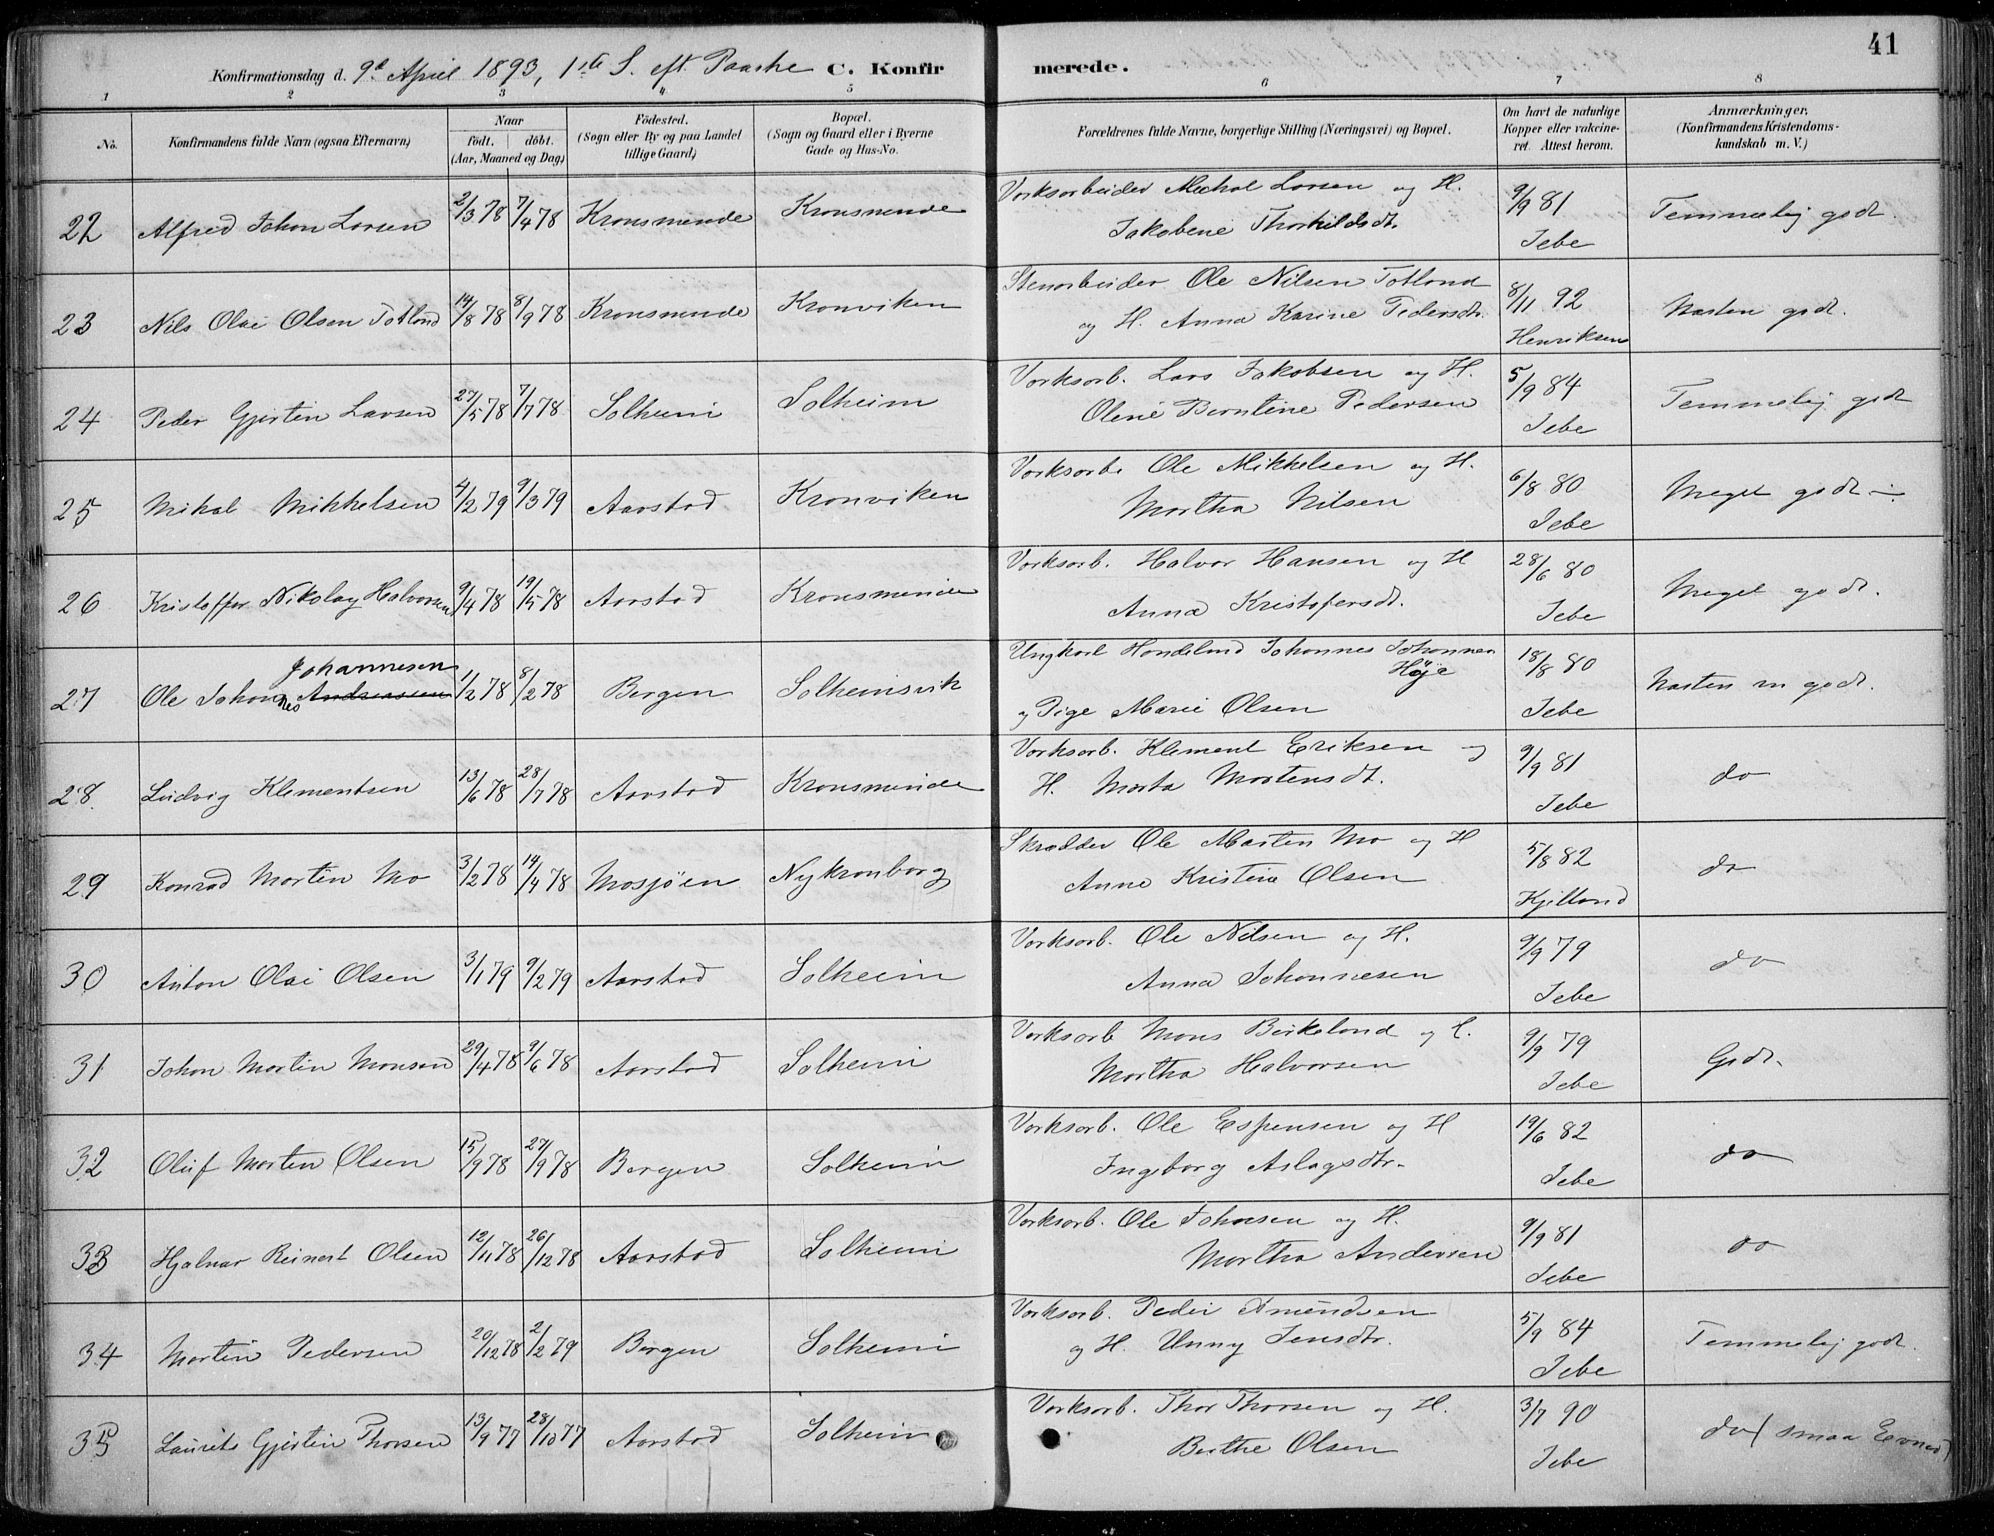 41
Konfirmationsdag d. 9d April 1893, 1ste S. eft. Paaske C. Konfirmerede.
1 2 3 4 5 6 7 8
No. Konfirmandens fulde Navn (ogsaa Efternavn) Naar født. døbt. (Aar, Maaned og Dag) Fødested. (Sogn eller By og paa Landet tillige Gaard) Bopæl. (Sogn og Gaard eller i Byerne Gade og Hus-No. Forældrenes fulde Navne, borgerlige Stilling (Næringsvei) og Bopæl. Om havt de naturlige Kopper eller vakcineret. Attest herom. Anmærkninger. (Konfirmandens Kristendomskundskab m. V.)
22 Alfred Johan Larsen 2/3 78 7/4 78 Kronsminde Kronsminde Værksarbeider Mechal Larsen og H. Jakobene Thorkildsdt. 9/9 81 Jebe Temmelig godt.
23 Nils Olai Olsen Totland 14/8 78 8/9 78 Kronsminde Kronviken Stenarbeider Ole Nilsen Totland og H. Anna Karine Pedersdt. 8/11 92 Henriksen Næsten godt.
24 Peder Gjertin Larsen 27/5 78 7/7 78 Solheim Solheim Værksarb. Lars Jakobsen og H. Oline Berntine Pedersen 5/9 84 Jebe Temmelig godt
25 Mikal Mikkelsen 4/2 79 9/3 79 Aarstad Kronviken Værksarb. Ole Mikkelsen og H. Martha Nilsen 6/8 80 Jebe Meget godt
26 Kristoffer Nikolay Halvorsen 9/4 78 19/5 78 Aarstad Kronsminde Værksarb. Halvor Hansen og H Anna Kristofersdt. 28/6 80 Jebe Meget godt.
27 Ole Johannes Andreassen Johannesen 1/2 78 8/2 78 Bergen Solheimsvik Ungkarl Johannes Høje og Pige Marie Olsen 18/8 80 Jebe Næsten m godt.
28. Ludvig Klementsen 13/6 78 28/7 78 Aarstad Kronsminde Værksarb. Klement Eriksen og H. Marta Mortensdt. 9/9 81 Jebe do
29 Konrad Martin Mo 3/2 78 14/4 78 Mosjøen Nykronborg Skrædder Ole Marten Mo og H Anne Kristina Olsen 5/8 82 Kjelland do
30 Anton Olai Olsen 3/1 79 9/2 79 Aarstad Solheim Værksarb. Ole Nilsen og H. Anna Johannesen 9/9 79 Jebe do
31 Johan Martin Monsen 29/4 78 9/6 78 Aarstad Solheim Værksarb Mons Birkeland og H. Martha Halvorsen 9/9 79 Jebe Godt.
32 Oluf Morten Olsen 15/9 78 27/9 78 Bergen Solheim Værksarb. Ole Espensen og H Ingeborg Aslagsdtr. 19/6 82 Jebe do
33 Hjalmar Reinert Olsen 12/11 78 26/12 78 Aarstad Solheim Værksarb. Ole Johnsen og H. Martha Andersen 9/9 81 Jebe do
34 Martin Pedersen 20/12 78 2/2 79 Bergen Solheim Værksarb. Peder Amundsen og H. Unny Jensdtr. 5/9 84 Jebe Temmelig godt.
35 Laurits Gjertin Thorsen 13/9 77 28/10 77 Aarstad Solheim Værksarb. Thor Thorsen og H. Berthe Olsen 3/7 90 Jebe do (smaa Evner)